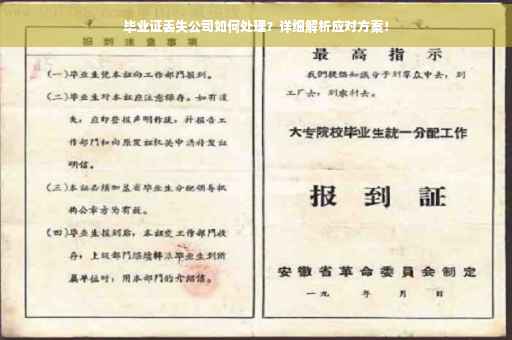 毕业证丢失公司如何处理？详细解析应对方案！
报到注意事项
(一)毕业生凭本証向工作部門报到。
(二)毕业生对本証应注意保存。如有遗
失，应即登报声明作废，并报告工
作部門和向原发証机关申请补发証
明信。
(三)本証必须加盖省毕业生分配领导机
构公章方为有效。
(四)毕业生报到后，本証交工作部門收
存；上级部門继续轉派毕业生到所
属单位时，用本部門的介绍信。
最高指示
我們提倡知识分子到羣众中去，到
工厂去，到农村去。
大专院校毕业生統一分配工作
报到証
安徽省革命委員会制定
一九 年 月 日